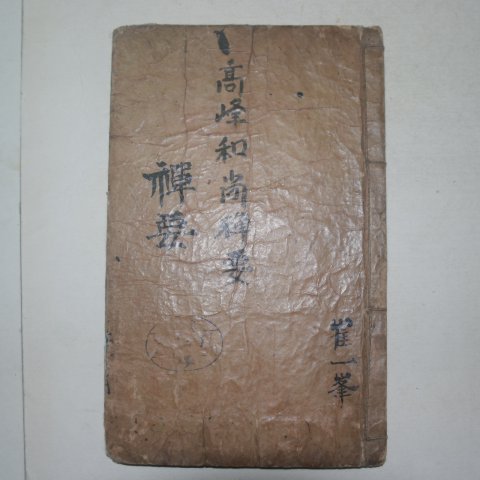 崔一峯
高峰和尚禪要
禪要